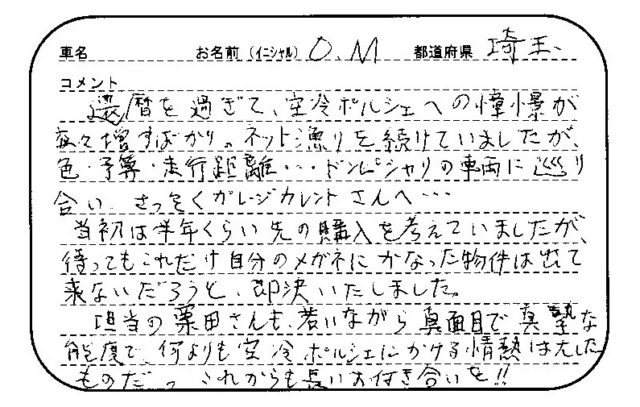 車名 お名前(イニシャル) O.M 都道府県 埼玉
コメント
還暦を過ぎて、空冷ポルシェへの憧憬が
益々増すばかり。ネット漁りを続けていましたが、
色・予算・走行距離…ドンピシャリの車両に巡り
合い、さっそくガレージカレントさんへ…
当初は半年くらい先の購入を考えていましたが、
待ってもこれだけ自分のメガネにかなった物件は出て
来ないだろうと、即決いたしました。
担当の栗田さんも、若いながら真面目で真摯な
態度で、何よりも空冷ポルシェにかける情熱は大した
ものだ。これからも長いお付き合いを!!